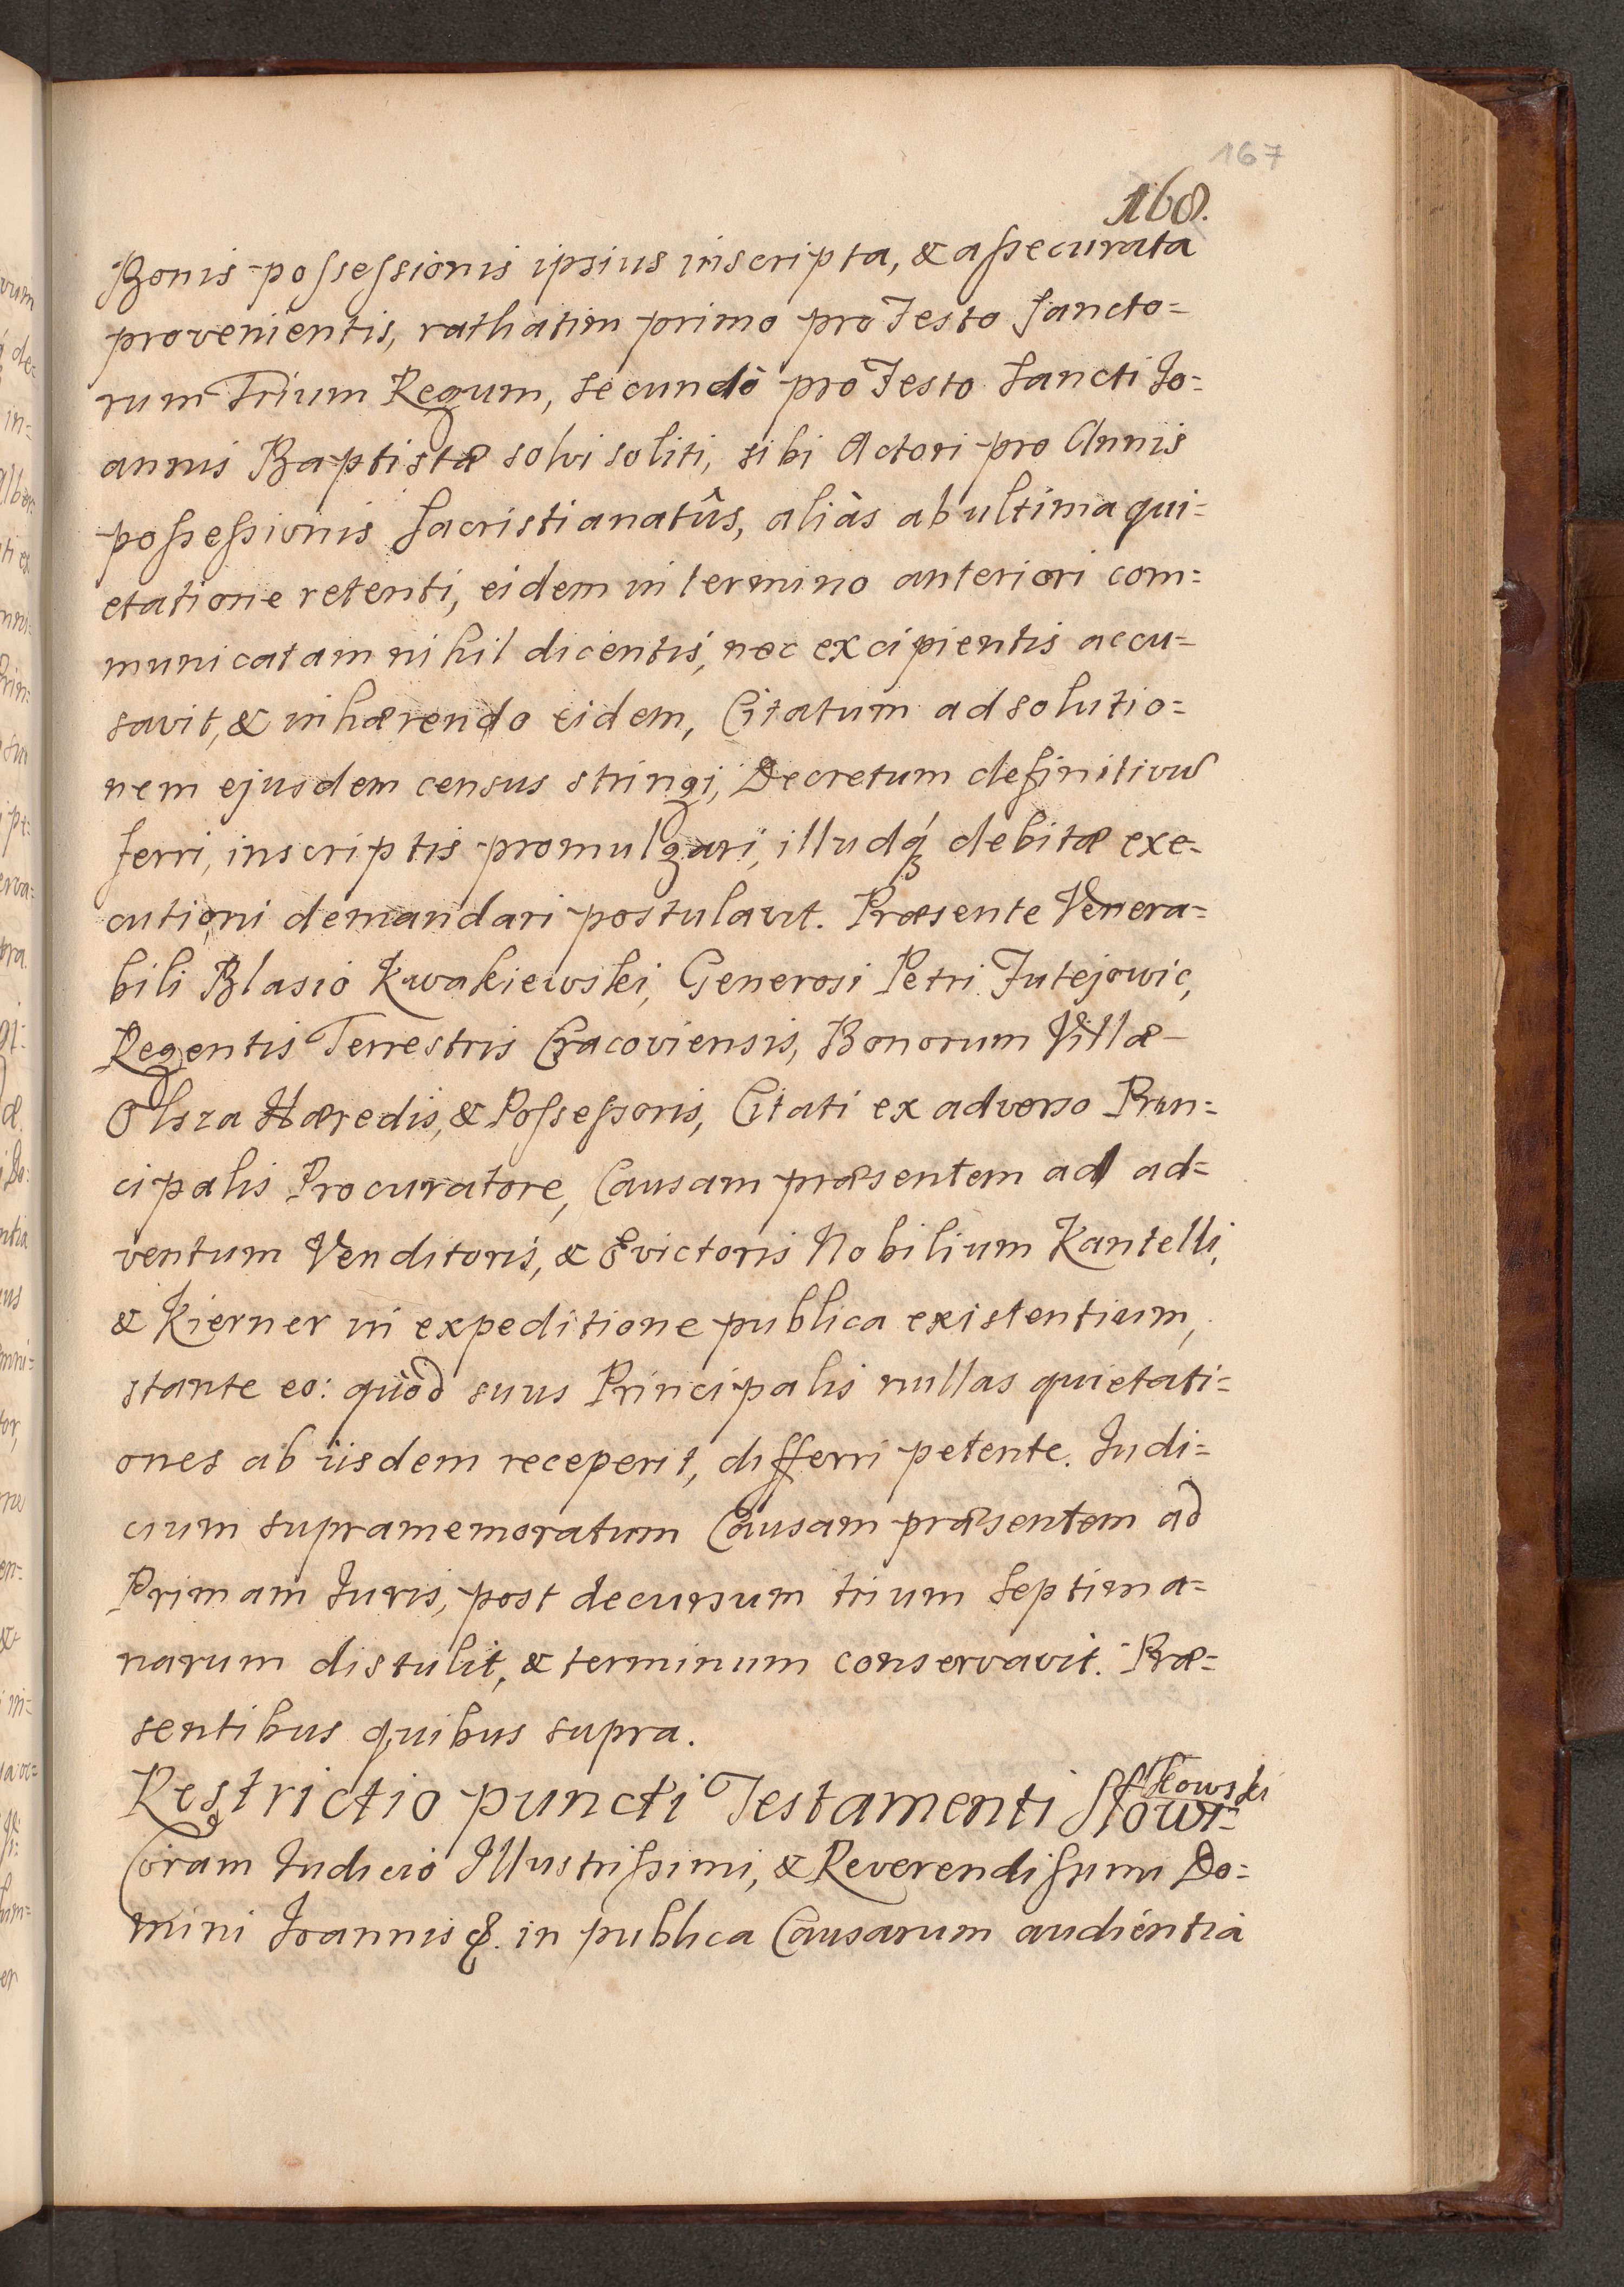 167
168.
Bonis possessionis ipsius inscripta, & assecurata
provenientis, rathatim primo pro Festo Sancto=
rum Trium Regum, secundò pro Festo Sancti Jo=
annis Baptistæ solvi soliti, sibi Actori pro Annis
possessionis Sacristianatûs, aliàs ab ultima qui=
etatione retenti, eidem in termino anteriori com=
municatam nihil dicentis, nec excipientis accu=
savit, & inhærendo eidem, Citatum ad solutio=
nem ejusdem census stringi, Decretum definitivũ
ferri, inscriptis promulgari, illudq́ȝ debitæ exe=
cutioni demandari postulavit. Præsente Venera=
bili Blasio Kwakiewski, Generosi Petri Futejowic,
Regentis Terrestris Cracoviensis, Bonorum Villæ
Olsza Hæredis, & Possessoris, Citati ex adverso Prin=
cipalis Procuratore, Causam præsentem ad ad=
ventum Venditoris, & Evictoris Nobilium Kantelli,
& Kierner in expeditione publica existentium,
stante eo: quòd suus Principalis nullas quietati=
ones ab iisdem receperit, differri petente. Judi=
cium supramemoratum Causam præsentem ad
Primam Juris, post decursum trium Septima=
narum distulit, & terminum conservavit. Præ=
sentibus quibus supra.
Restrictio puncti Testamenti Słowi=
kowski
Coram Judicio Illustrissimi, & Reverendissimi Do=
mini Joannis &. in publica Causarum audientia